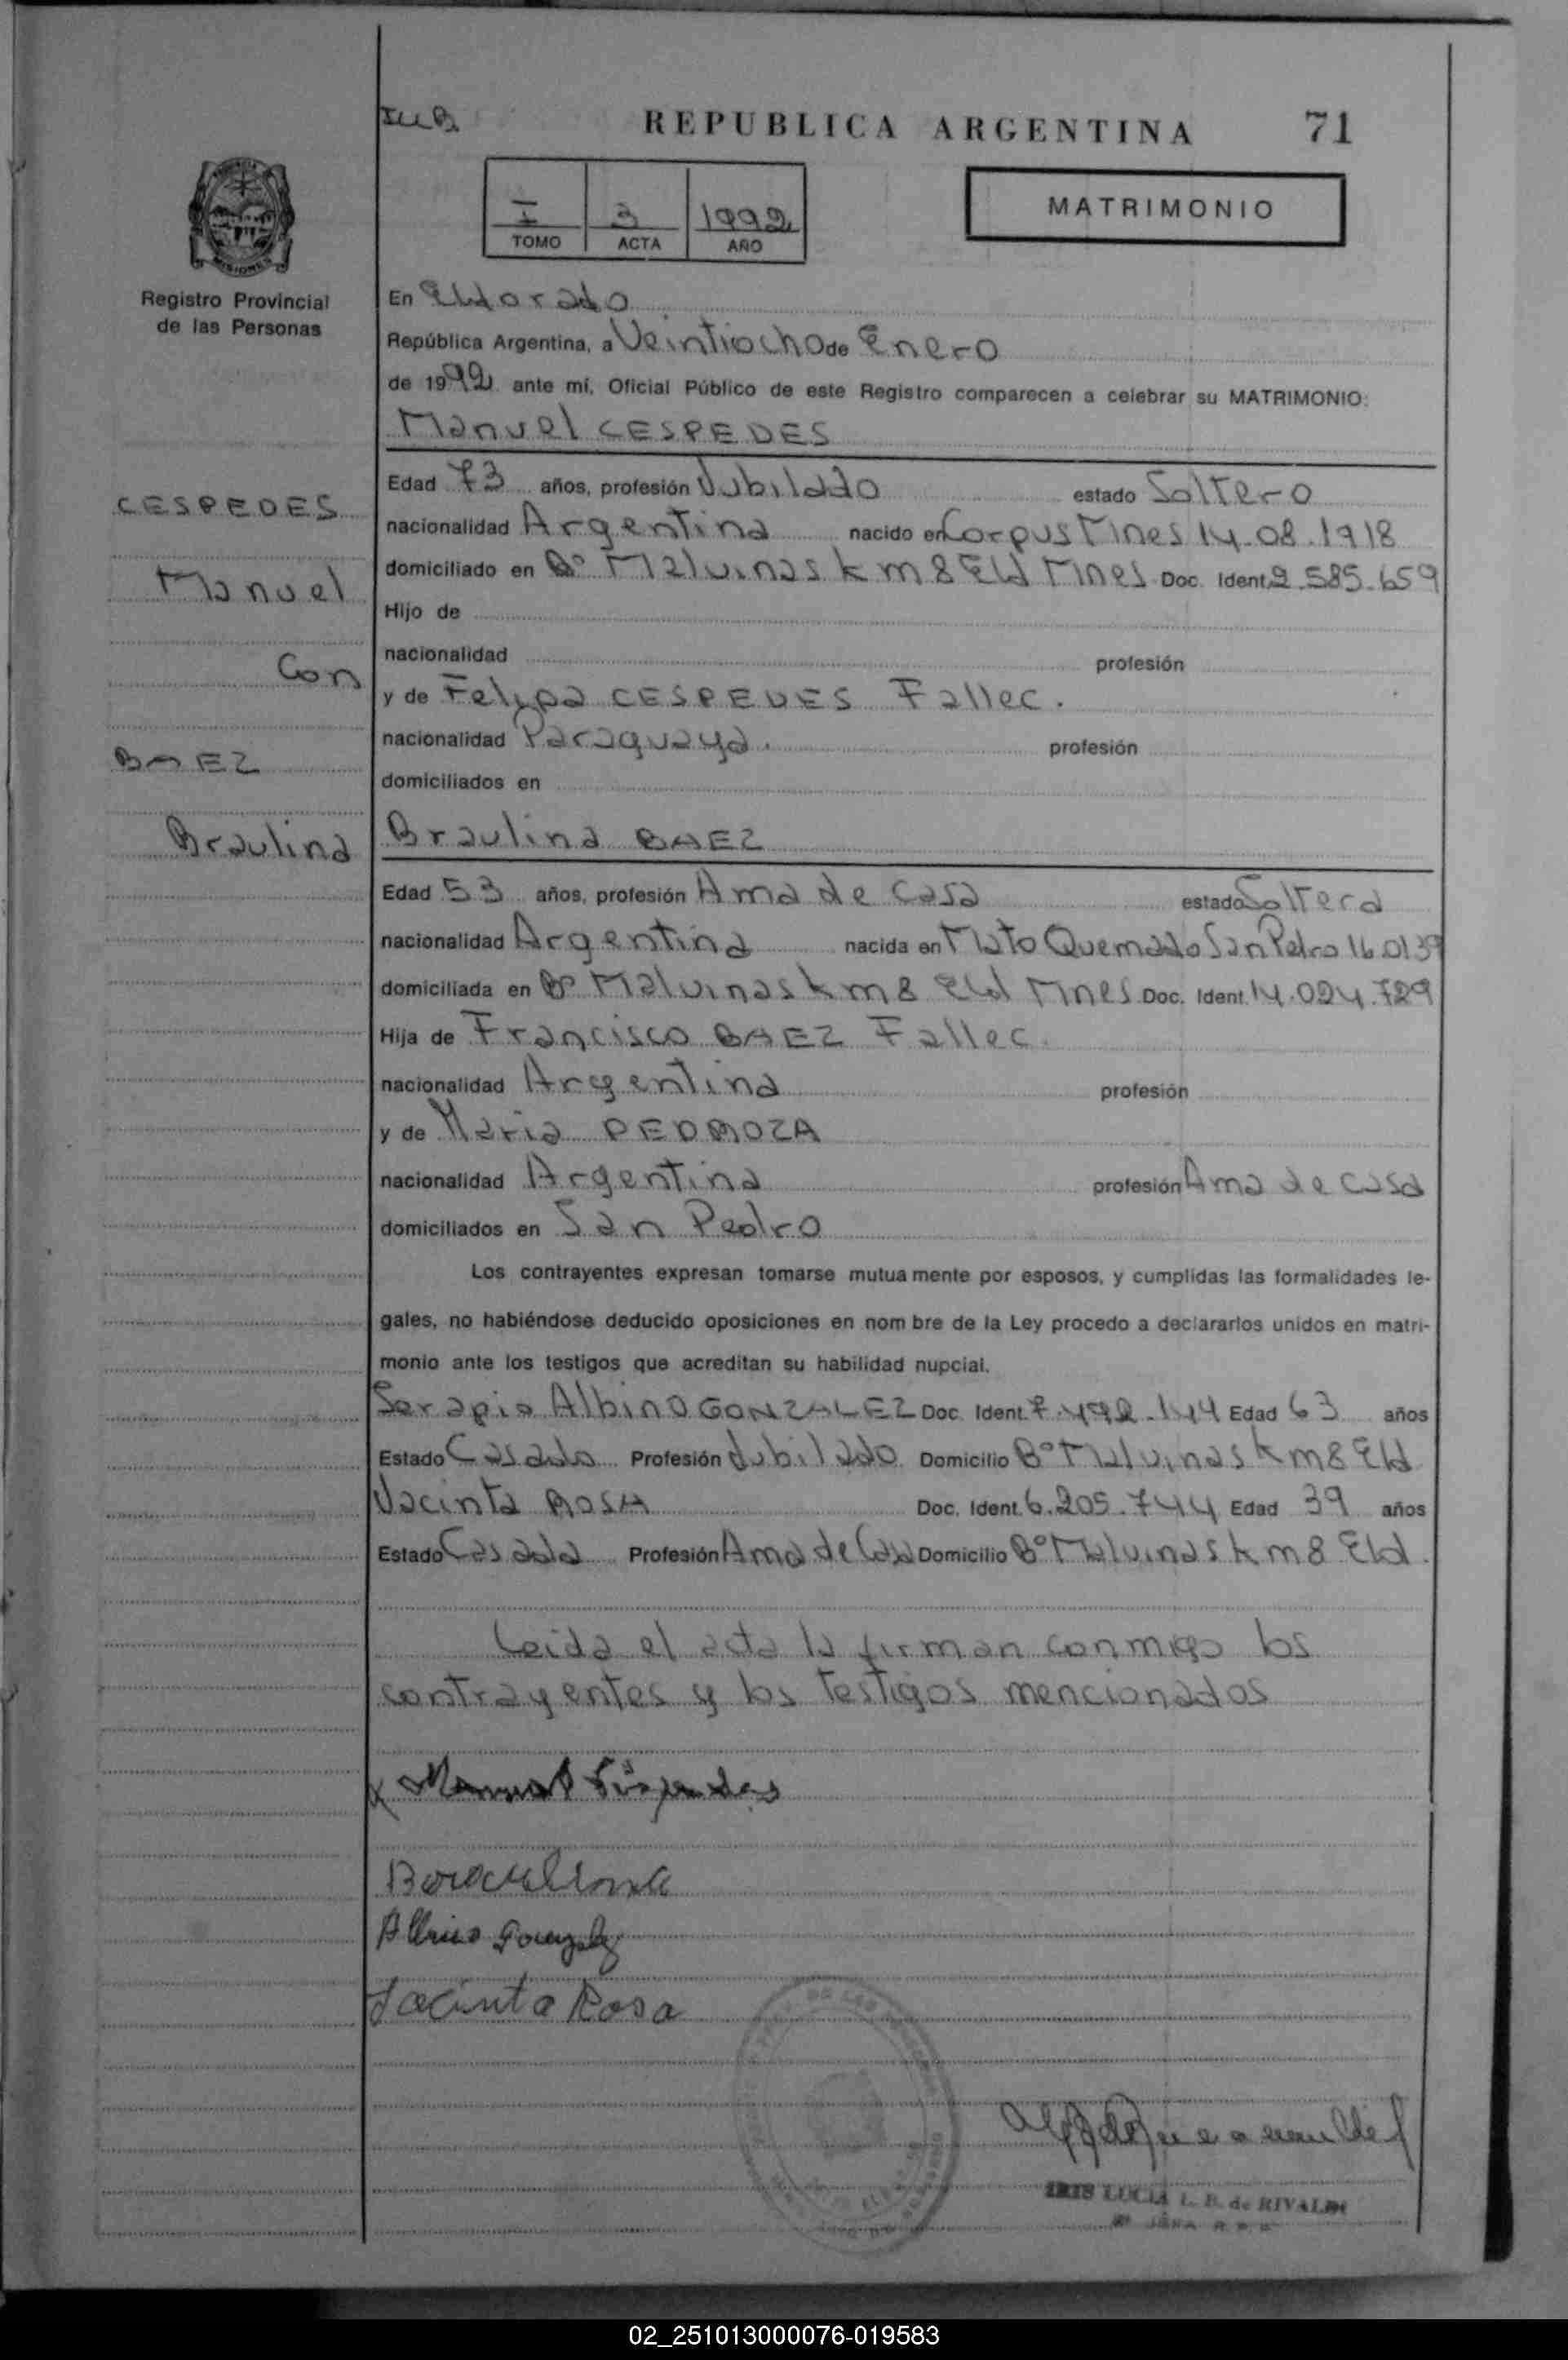 REPUBLICA ARGENTINA 71
I 3 1992
TOMO ACTA AÑO
MATRIMONIO
MISIONES
Registro Provincial
de las Personas
En Eldorado
República Argentina, a Veintiocho de Enero
de 1992 ante mí, Oficial Público de este Registro comparecen a celebrar su MATRIMONIO:
Manuel CESPEDES
CESPEDES
Manuel
Con
BAEZ
Braulina
Edad 73 años, profesión Jubilado estado Soltero
nacionalidad Argentina nacido en Corpus Mnes 14.08.1918
domiciliado en Bº Malvinas km 8 Eld Mnes Doc. Ident. 2.585.659
Hijo de
nacionalidad profesión
y de Felipa CESPEDES Fallec.
nacionalidad Paraguaya. profesión
domiciliados en
Braulina BAEZ
Edad 53 años, profesión Ama de Casa estado Soltera
nacionalidad Argentina nacida en Mato Quemado San Pedro 16.01.39
domiciliada en Bº Malvinas km 8 Eld Mnes Doc. Ident. 14.024.729
Hija de Francisco BAEZ Fallec.
nacionalidad Argentina profesión
y de Maria PEDROZA
nacionalidad Argentina profesión Ama de Casa
domiciliados en San Pedro
Los contrayentes expresan tomarse mutua mente por esposos, y cumplidas las formalidades le-
gales, no habiéndose deducido oposiciones en nom bre de la Ley procedo a declararlos unidos en matri-
monio ante los testigos que acreditan su habilidad nupcial.
Serapio Albino GONZALEZ Doc. Ident. 7.492.144 Edad 63 años
Estado Casado Profesión Jubilado Domicilio Bº Malvinas km 8 Eld
Jacinta ROSA Doc. Ident. 6.205.744 Edad 39 años
Estado Casada Profesión Ama de Casa Domicilio Bº Malvinas km 8 Eld.
Leida el acta la firman conmigo los
contrayentes y los testigos mencionados
Manuel Cespedes
Albino Gonzalez
Jacinta Rosa
IRIS LUCIA L. B. de RIVALDI
02_251013000076-019583